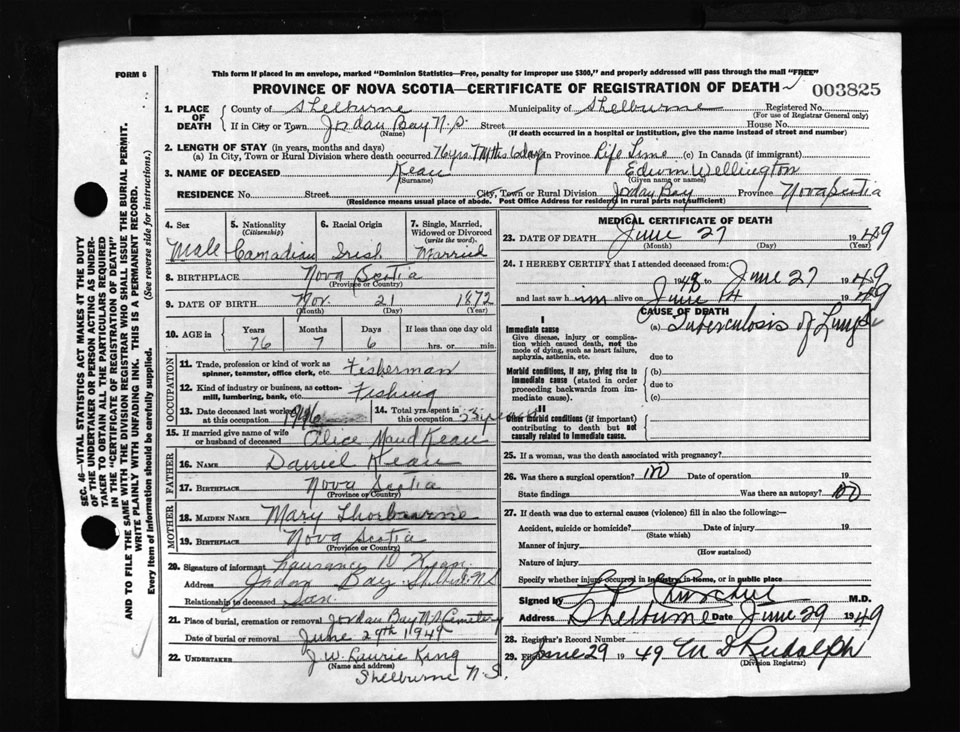 FORM 6
This form if placed in an envelope, marked "Dominion Statistics—Free, penalty for improper use $300," and properly addressed will pass through the mail "FREE"
PROVINCE OF NOVA SCOTIA—CERTIFICATE OF REGISTRATION OF DEATH
003825
1. PLACE OF DEATH County of Shelburne Municipality of Shelburne Registered No.
(For use of Registrar General only)
If in City or Town Jordan Bay N.S. Street House No.
(Name) (If death occurred in a hospital or institution, give the name instead of street and number)
2. LENGTH OF STAY (in years, months and days)
(a) In City, Town or Rural Division where death occurred 76 yrs. 7 mths 6 days in Province Life Time (c) In Canada (if immigrant)
3. NAME OF DECEASED Kean Edwin Wellington
(Surname) (Given name or names)
RESIDENCE No. Street City, Town or Rural Division Jordan Bay Province Nova Scotia
(Residence means usual place of abode. Post Office Address for residents in rural parts not sufficient)
4. Sex 5. Nationality (Citizenship) 6. Racial Origin 7. Single, Married, Widowed or Divorced (write the word)
Male Canadian Irish Married
8. BIRTHPLACE Nova Scotia
(Province or Country)
9. DATE OF BIRTH Nov. 21 1872
(Month) (Day) (Year)
10. AGE in Years Months Days If less than one day old
76 7 6 hrs. or min.
OCCUPATION
11. Trade, profession or kind of work as spinner, teamster, office clerk, etc. Fisherman
12. Kind of industry or business, as cotton-mill, lumbering, bank, etc. Fishing
13. Date deceased last worked at this occupation 1946 14. Total yrs. spent in this occupation 53 years
15. If married give name of wife or husband of deceased Alice Maud Kean
FATHER
16. NAME Daniel Kean
17. BIRTHPLACE Nova Scotia
(Province or Country)
MOTHER
18. MAIDEN NAME Mary Thorbourne
19. BIRTHPLACE Nova Scotia
(Province or Country)
20. Signature of informant
Address Jordan Bay N.S.
Relationship to deceased Son.
21. Place of burial, cremation or removal Jordan Bay N.S Cemetery
Date of burial or removal June 29th 1949
22. UNDERTAKER J. W. Laurie King
(Name and address)
Shelburne N.S.
MEDICAL CERTIFICATE OF DEATH
23. DATE OF DEATH June 27 1949
(Month) (Day) (Year)
24. I HEREBY CERTIFY that I attended deceased from:
1948 June 27 1949
and last saw h im alive on June 14 1949
CAUSE OF DEATH
I
Immediate cause (a) Tuberculosis of Lungs
Give disease, injury or complication which caused death, not the mode of dying, such as heart failure, asphyxia, asthenia, etc.
due to
Morbid conditions, if any, giving rise to immediate cause (stated in order proceeding backwards from immediate cause).
(b)
due to
(c)
II
Other morbid conditions (if important) contributing to death but not causally related to immediate cause.
25. If a woman, was the death associated with pregnancy?
26. Was there a surgical operation? no Date of operation 19
State findings Was there an autopsy? no
27. If death was due to external causes (violence) fill in also the following:—
Accident, suicide or homicide? Date of injury 19
(State which)
Manner of injury
(How sustained)
Nature of injury
Specify whether injury occurred in industry, in home, or in public place
Signed by Churchill M.D.
Shelburne Date June 29 1949
28. Registrar's Record Number
29. June 29 1949 Rudolph
(Division Registrar)
SEC. 46—VITAL STATISTICS ACT MAKES IT THE DUTY
OF THE UNDERTAKER OR PERSON ACTING AS UNDER-
TAKER TO OBTAIN ALL THE PARTICULARS REQUIRED
IN THE "CERTIFICATE OF REGISTRATION OF DEATH"
AND TO FILE THE SAME WITH THE DIVISION REGISTRAR WHO SHALL ISSUE THE BURIAL PERMIT.
WRITE PLAINLY WITH UNFADING INK. THIS IS A PERMANENT RECORD.
Every item of information should be carefully supplied. (See reverse side for instructions.)